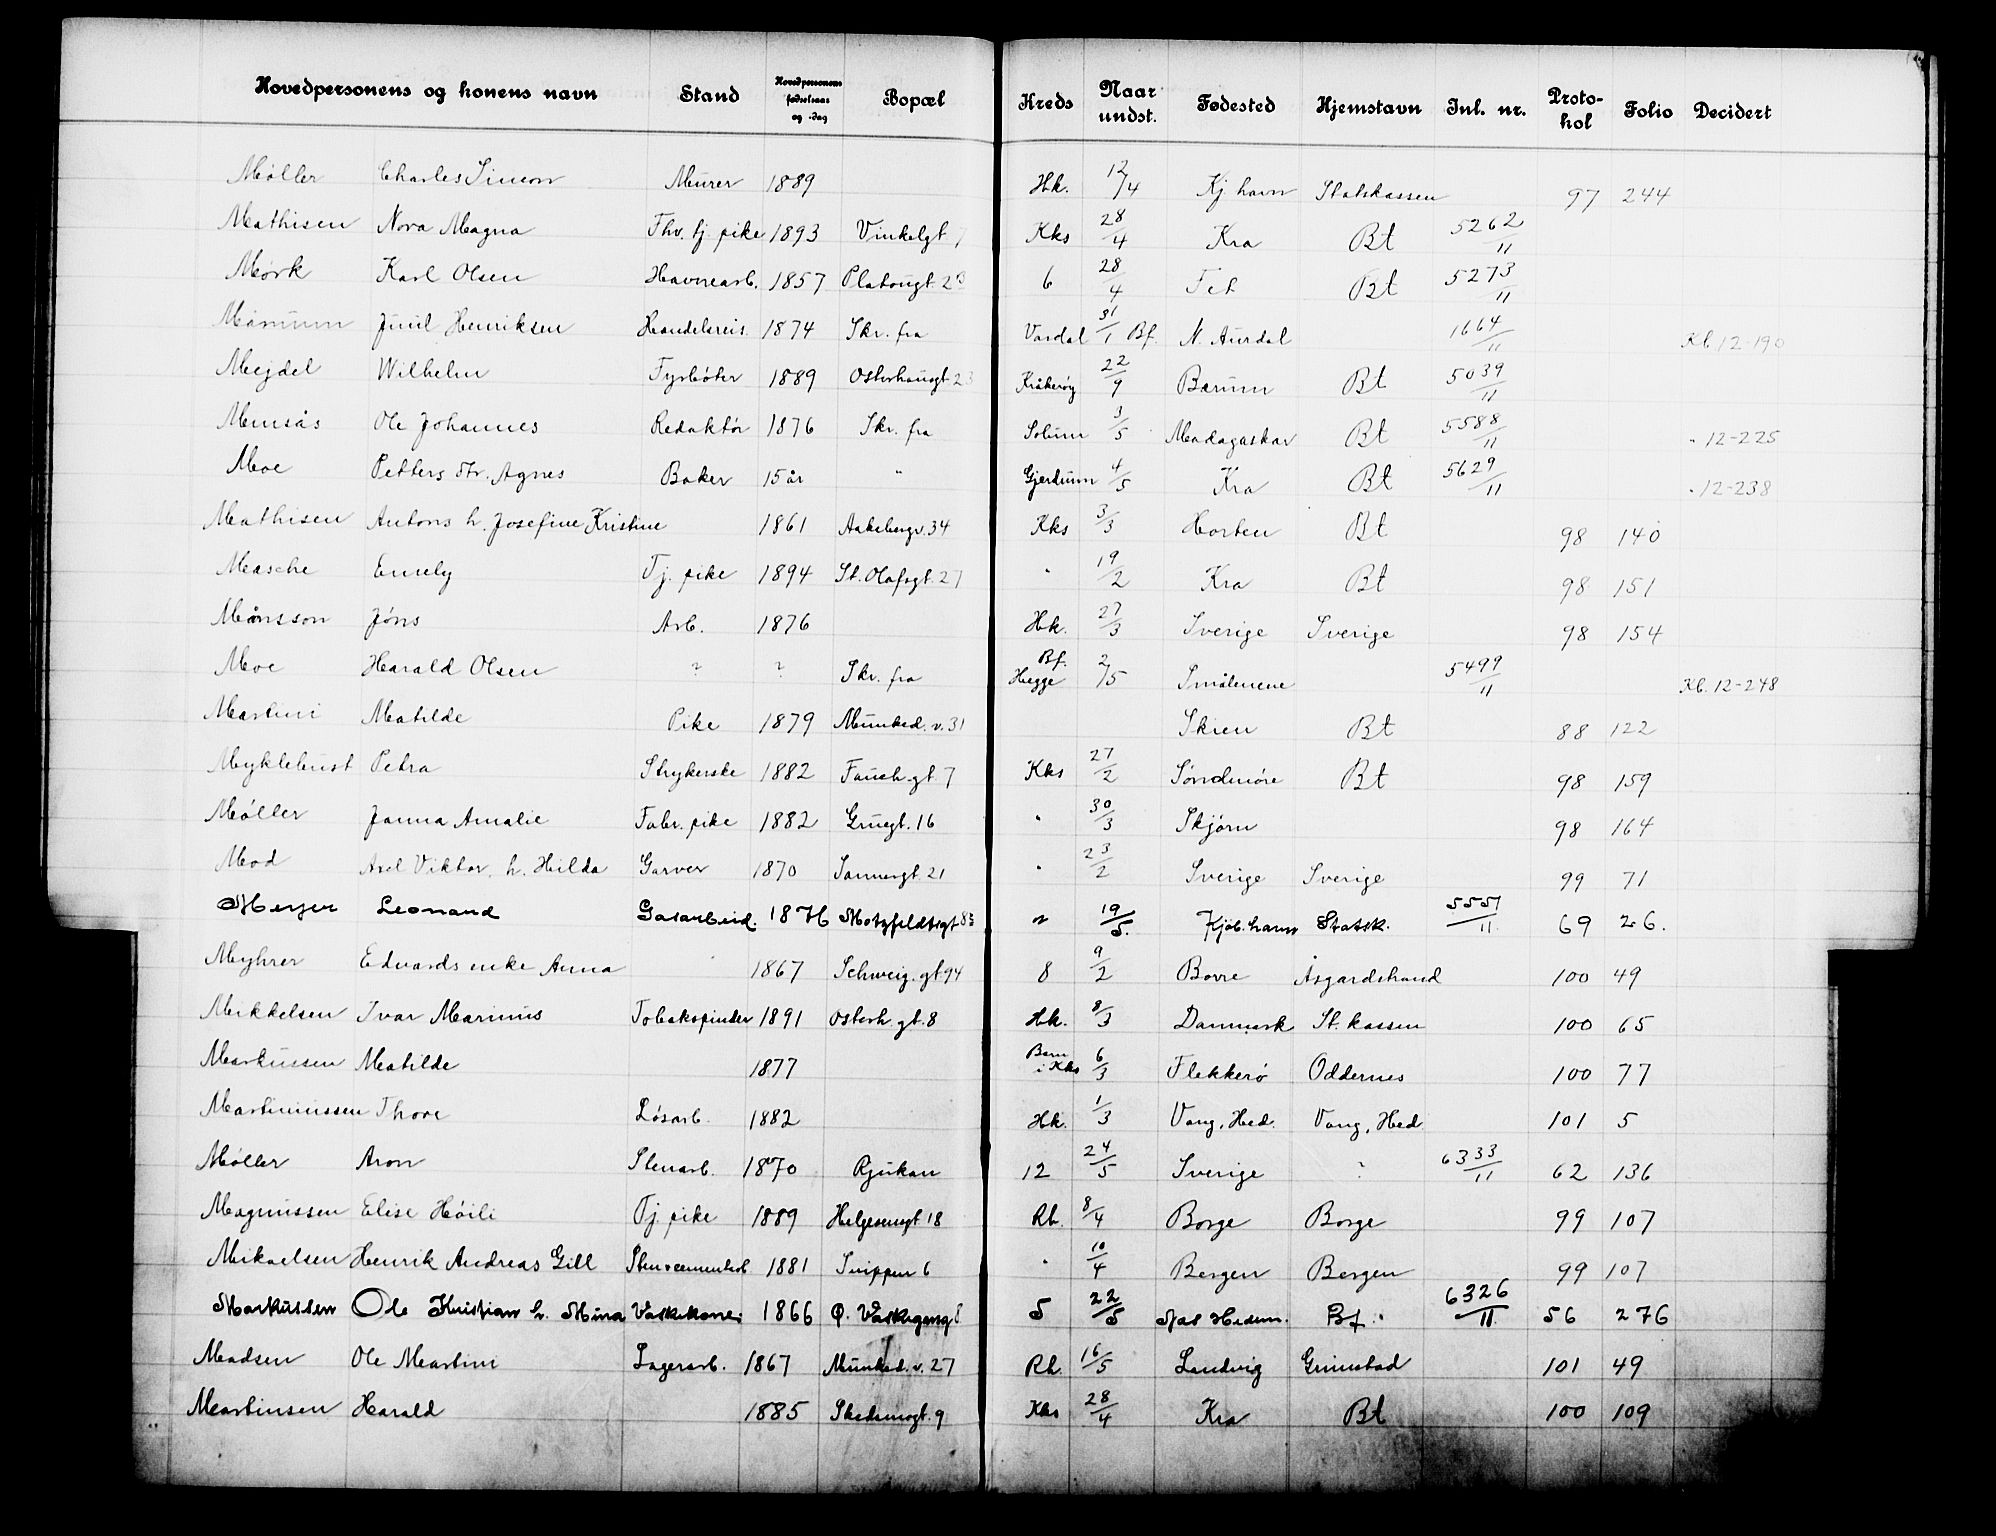 Hovedpersonens og konens navn Stand Hovedpersonens fødselsaar og -dag Bopæl Kreds Naar undst. Fødested Hjemstavn Inl. nr. Proto-kol Folio Decidert
Møller Charles Simon Murer 1889 Hk. 12/4 Kj havn Statskassen 97 244
Mathisen Nora Magna Fhv. tj. pike 1893 Vinkelgt 7 Kks 28/4 Kra Bt 5262/11
Mørk Karl Olsen Havnearb. 1857 Platougt 6 28/4 Fet Bt 5273/11
Juul Henriksen Handelsreis. 1874 Skr. fra Vardal 31/1 Bf. N. Aurdal 1664/11 Kl. 12-190
Mejdel Wilhelm Fyrbøter 1889 Osterhausgt 23 Kråkerøy 22/9 Bærum Bt 5039/11
Ole Johannes Redaktør 1876 Skr. fra Solum 3/5 Madagaskar Bt 5588/11 " 12-225
Moe Petters dtr. Agnes Baker 15 år " Gjerdrum 4/5 Kra Bt 5629/11 " 12-238
Mathisen Antons h. Josefine Kristine 1861 Aakebergv. 34 Kks 3/3 Horten Bt 98 140
Masche Emely Tj. pike 1894 St. Olafsgt. 27 " 19/2 Kra Bt 98 151
Månsson Jöns Arb. 1876 Hk. 27/3 Sverige Sverige 98 154
Moe Harald Olsen ? ? Skr. fra Bf. Hegge 2/5 Smålenene 5499/11 Kl. 12-248
Martini Matilde Pike 1879 Munked. v. 31 Skien Bt 88 122
Myklebust Petra Strykerske 1882 Fauch. gt. 7 Kks 27/2 Søndmøre Bt 98 159
Møller Janna Amalie Fabr. pike 1882 Gruegt. 16 " 30/3 Skjørn 98 164
Mod Axel Viktor, h. Hilda Garver 1870 Sannergt. 21 " 23/2 Sverige Sverige 99 71
Meyer Leonard Gasarbeid. Motzfeldtsgt " 19/5. Kjøb. havn Statsk. 5551/11 69 26.
Myhrer Edvards enke Anna 1867 Schweig. gt 94 8 9/2 Borre Åsgardstrand 100 49
Mikkelsen Ivar Marinus Tobakspinder 1891 Osterh. gt. 8 Hk. 8/3 Danmark St. kassen 100 65
Markussen Matilde 1877 Barn i Kks 6/3 Flekkerø Oddernes 100 77
Martiniussen Thore Løsarb. 1882 Hk. 1/3 Vang, Hed. Vang, Hed. 101 5
Møller Aron Stenarb. 1870 Rjukan 12 24/5 Sverige ? 6333/11 62 136
Magnussen Elise Höili Tj. pike 1889 Helgesensgt 18 Rk. 8/4 Borge Borge 99 107
Mikaelsen Henrik Andreas Gill 1881 Snippen 6 " 10/4 Bergen Bergen 99 107
Markussen Ole Kristian h. Mina Vaskekone 1866 Ø. Vaskegang 5 22/5 Hedem. Bf. 6326/11 56 276
Madsen Ole Martini Lagerarb. 1867 Munked. v. 27 Rk. 16/5 Landvig Grimstad 101 49
Martinsen Harald 1885 Skedsmogt. 9 Kks 28/4 Kra Bt 100 109